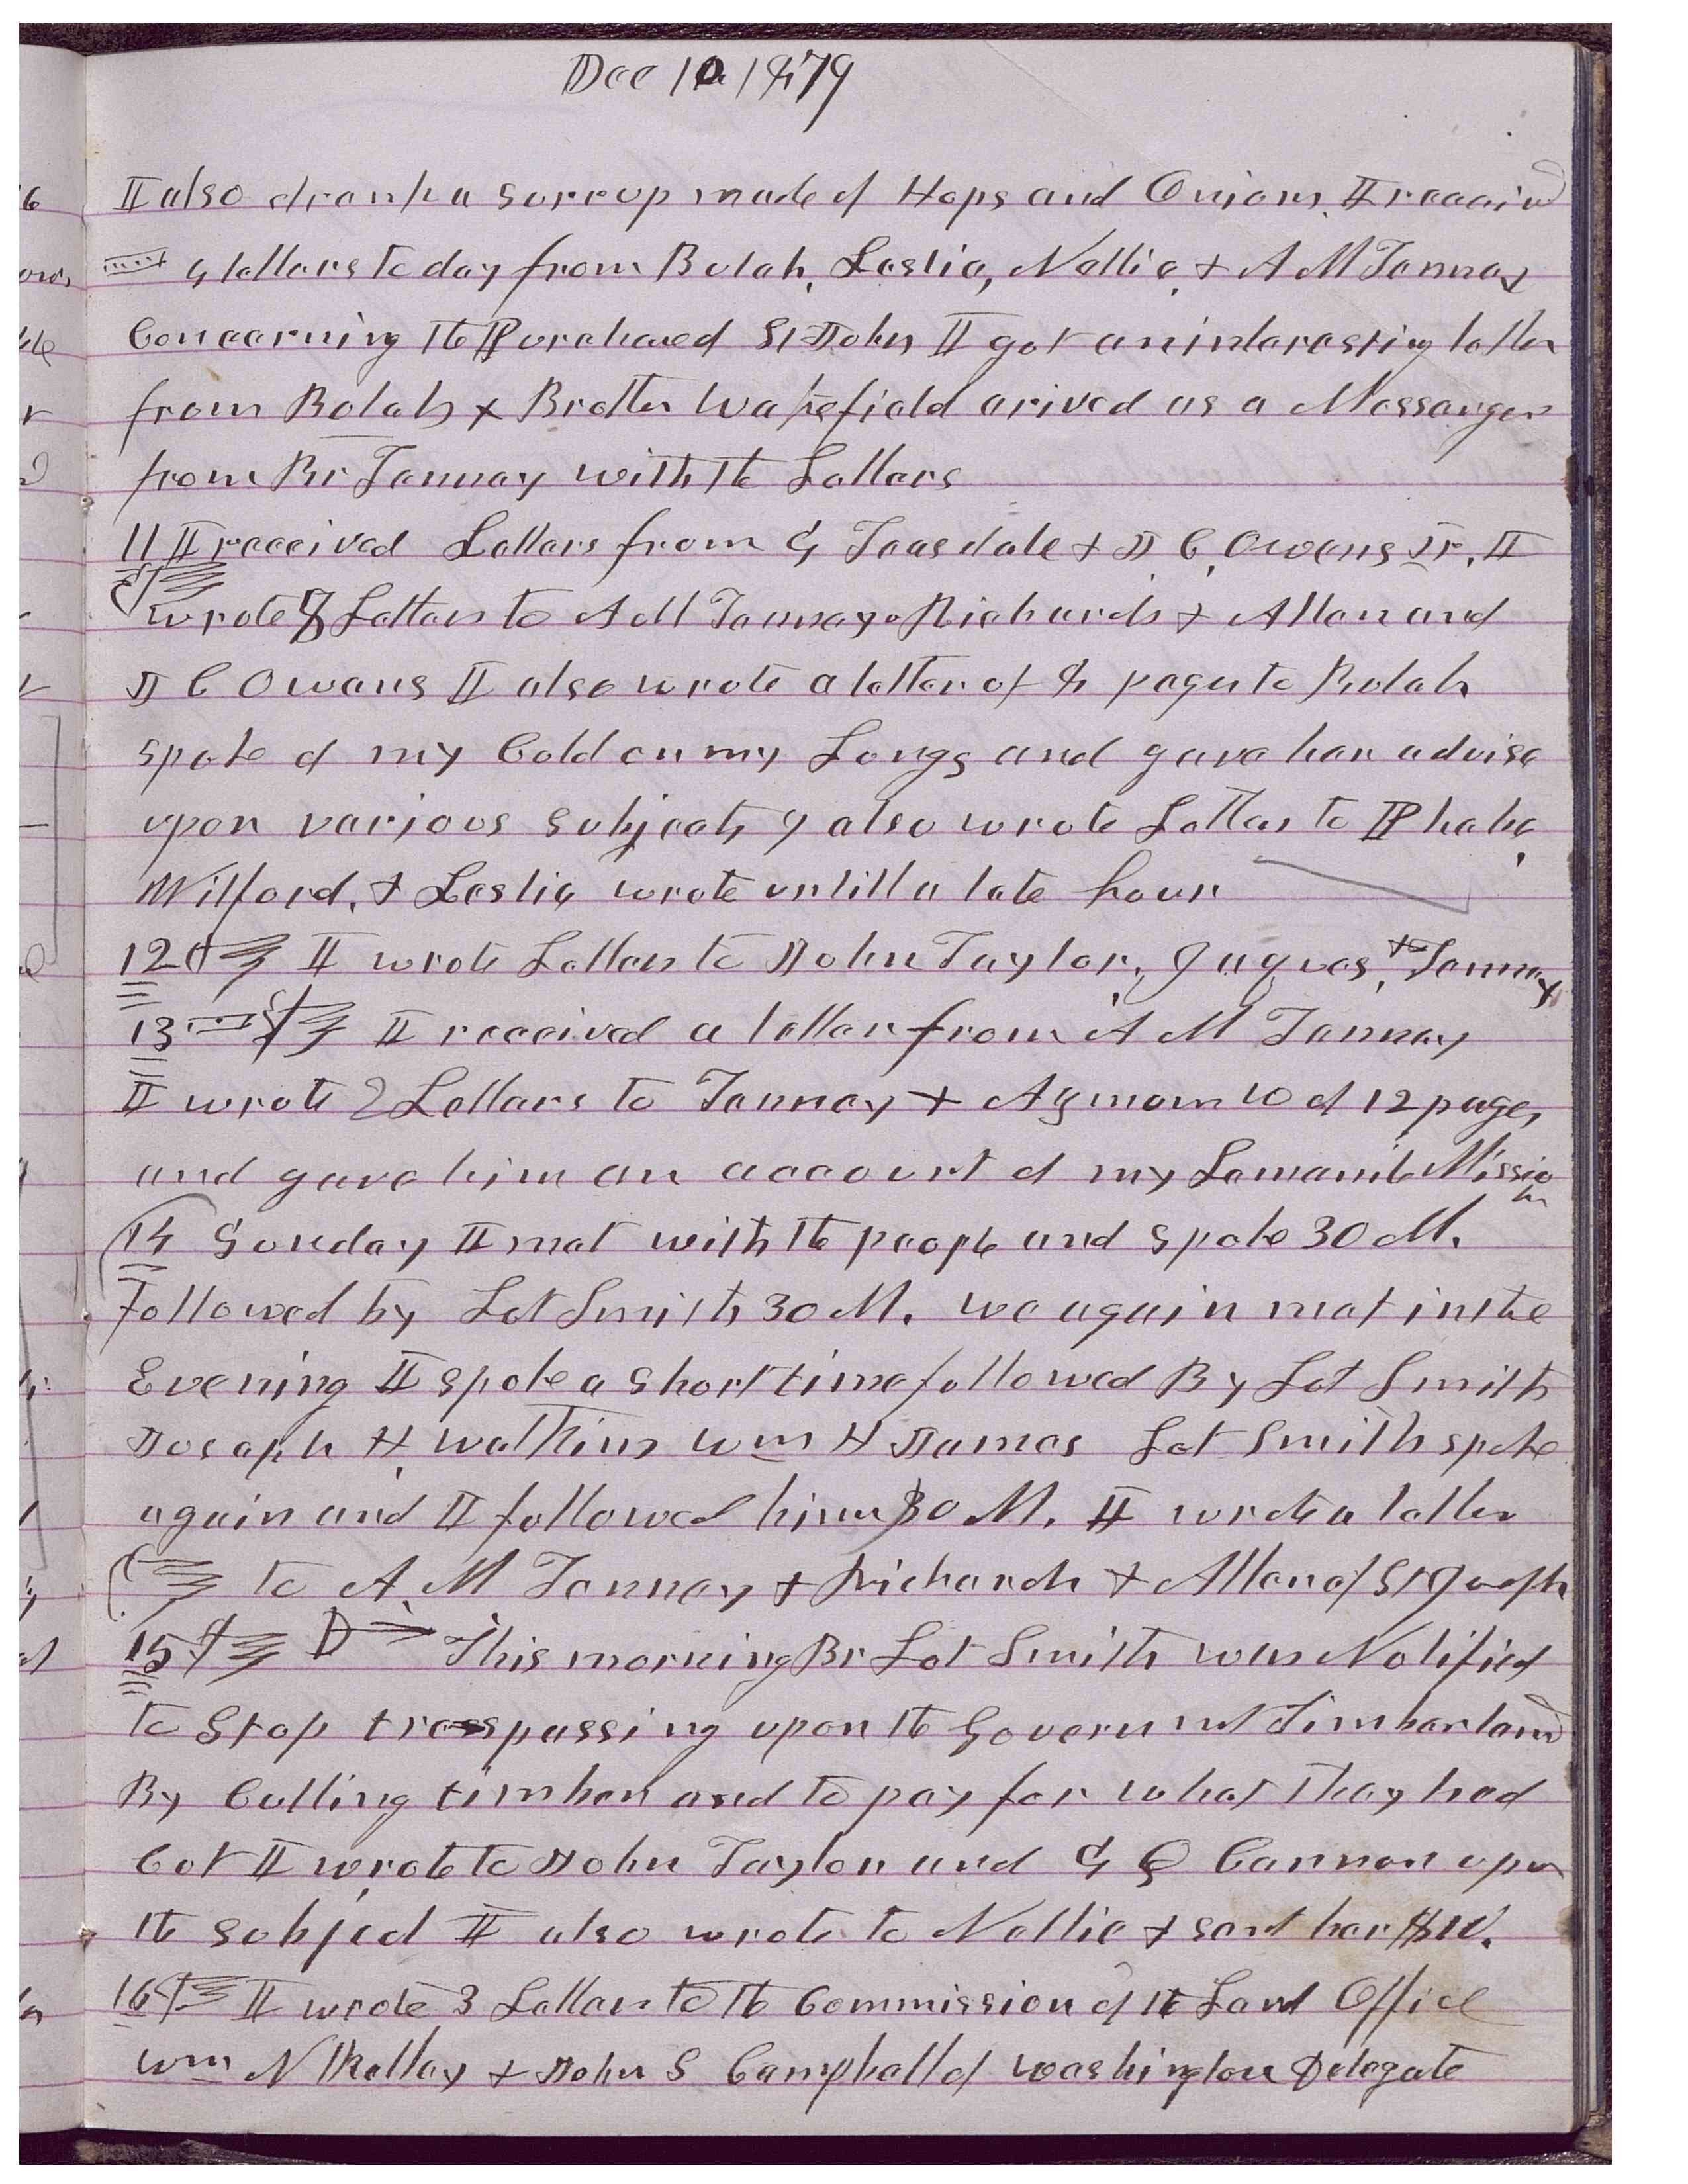 Dec 10 1879
I also drank a surrup made of Hops and Onions. I receivd
4 letters to day from Bulah, Leslie, Nellie, & A M Tenney
Concerning the Purchased St John I got an interesting letter
from Bulah & Brother Wakefield arived as a Messanger
from Br Tenney with the Letters
11 I received Letters from G Teasdale & J C, Owens Jr. I
wrote Letters to A M Tenney Richards & Allen and
J C Owens I also wrote a letter of 8 pages to Bulah
spoke of my Cold on my Longs and gave her advise
upon various subjects I also wrote Letters to Phebe,
Wilford, & Leslie wrote untill a late hour
12 I wrote Letters to John Taylor, Jaques, & Tenney
13 I received a letter from A M Tenney
I wrote 2 Letters to Tenney & of 12 pages
and gave him an account of my Lamanite Missio
n
14 Sunday I met with the people and spoke 30 M.
Followed by Lot Smith 30 M. we again met in the
Evening I spoke a short time followed By Lot Smith
Joseph H, watkins wm H James Lot Smith spoke
again and I followed him 30 M. I wrote a letter
to A. M Tenney & Richards & Allen of St Joseph
15 This morning Br Lot Smith was Notified
to Stop tresspassing upon the Governmt Timberland
By Cutting timber and to pay for what they had
Cut I wrote to John Taylor and G Q Cannon upon
the subject I also wrote to Nellie & sent her $10.
16 I wrote 3 Letters to the Commission of the Land Office
wm N Kelley & John S Campbell of washington Delegate
6